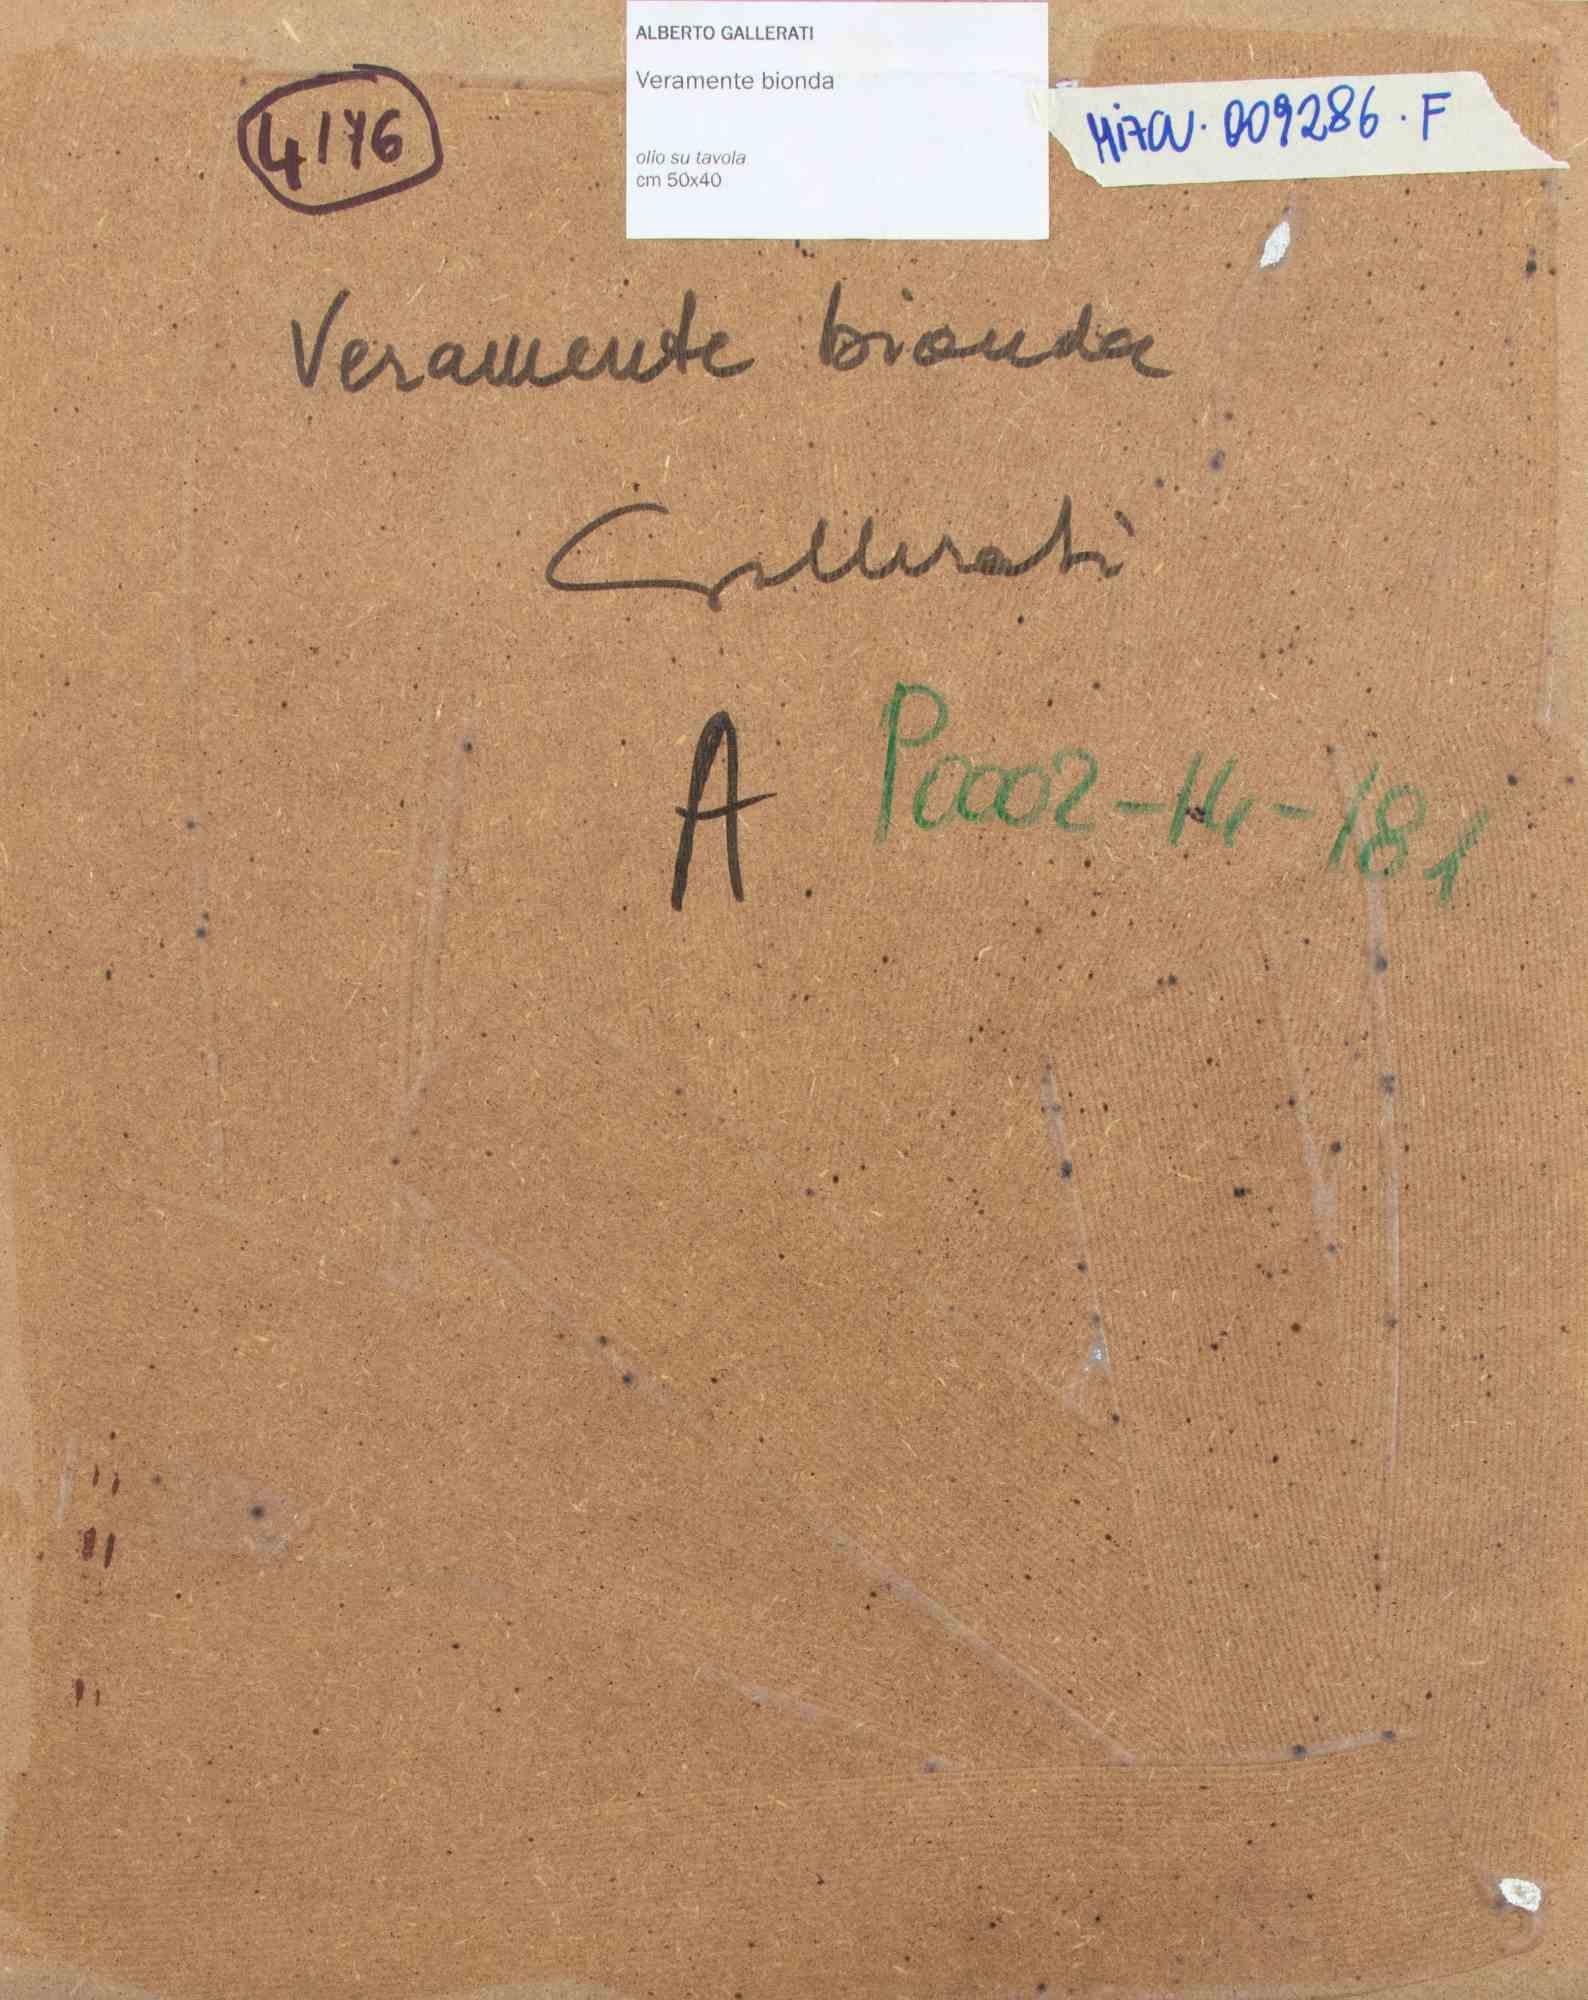 ALBERTO GALLERATI
Veramente bionda
olio su tavola
cm 50x40
4176
009286.F
Veramente bionda
Gallerati
A
P0002-14-181